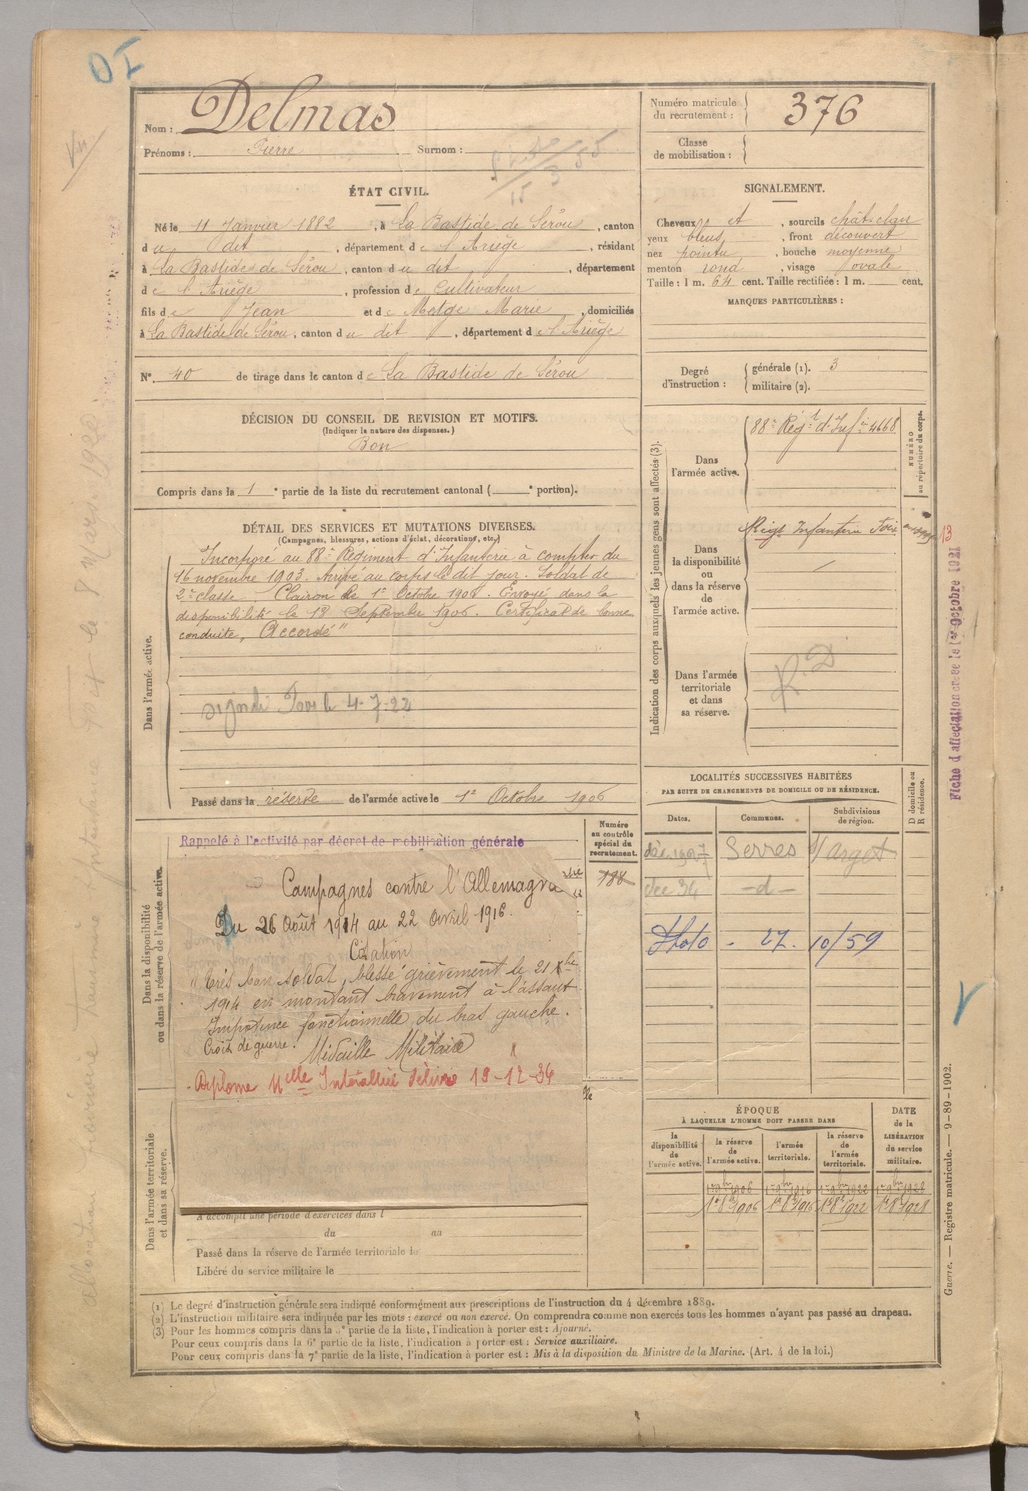 OI
Nom : Delmas
Prénoms : Pierre Surnom :
ÉTAT CIVIL.
Né le 11 Janvier 1882, à La Bastide de Sérou, canton
du dit, département de l'Ariège, résidant
à La Bastide de Sérou, canton du dit, département
de l'Ariège, profession de Cultivateur
fils de Jean et de Metge Marie, domiciliés
à La Bastide de Sérou, canton du dit, département de l'Ariège
N° 40 de tirage dans le canton de La Bastide de Sérou
DÉCISION DU CONSEIL DE REVISION ET MOTIFS.
(Indiquer la nature des dispenses.)
Bon
Compris dans la 1e partie de la liste du recrutement cantonal ( e portion).
DÉTAIL DES SERVICES ET MUTATIONS DIVERSES.
(Campagnes, blessures, actions d'éclat, décorations, etc.)
Dans l'armée active.
Incorporé au 88e Régiment d'Infanterie à compter du
16 novembre 1903. Arrivé au corps le dit jour. Soldat de
2e classe. Clairon le 1er Octobre 1906. Envoyé dans la
disponibilité le 18 Septembre 1906. Certificat de bonne
conduite „ Accordé"
4-7-22
Passé dans la réserve de l'armée active le 1er Octobre 1906
Dans la disponibilité
ou dans la réserve de l'armée active.
Rappelé à l'activité par décret de mobilisation générale
Campagnes contre l'Allemagne
Du 26 Août 1914 au 22 Avril 1916.
Citation
"très bon soldat, blessé grièvement le 21 Xbre
1914 en montant bravement à l'assaut
Impotence fonctionnelle du bras gauche.
Croix de guerre. Médaille Militaire
Diplome Mlle Interalliée délivré 13-12-34
Numéro
au contrôle
spécial du
recrutement.
188
Dans l'armée territoriale
et dans sa réserve.
A accompli une période d'exercices dans l
du au
Passé dans la réserve de l'armée territoriale le
Libéré du service militaire le
Numéro matricule
du recrutement : 376
Classe
de mobilisation :
SIGNALEMENT.
Cheveux et, sourcils chât clair
yeux bleus, front découvert
nez pointu, bouche moyenne
menton rond, visage ovale
Taille : 1 m. 64 cent. Taille rectifiée : 1 m. cent.
MARQUES PARTICULIÈRES :
Degré
d'instruction :
générale (1). 3
militaire (2).
Indication des corps auxquels les jeunes gens sont affectés (3).
Dans
l'armée active.
88e Régt d'Infie 4668
NUMÉRO
au répertoire du corps.
Dans
la disponibilité
ou
dans la réserve
de
l'armée active.
Régt Infanterie Foix
Dans l'armée
territoriale
et dans
sa réserve.
R.D
13
Fiche d'affectation créée le 1er Octobre 1921
LOCALITÉS SUCCESSIVES HABITÉES
PAR SUITE DE CHANGEMENTS DE DOMICILE OU DE RÉSIDENCE.
Dates. Communes. Subdivisions
de région.
D domicile ou
R résidence.
déc 1927 Serres s/Arget
dec 34 -d-
Photo - 27. 10/59
ÉPOQUE
À LAQUELLE L'HOMME DOIT PASSER DANS
la
disponibilité
de
l'armée active.
la réserve
de
l'armée active.
l'armée
territoriale.
la réserve
de
l'armée
territoriale.
DATE
de la
LIBÉRATION
du service
militaire.
1er 8bre 1906 1er 8bre 1916 1er 8bre 1922 1er 8bre 1928
Guerre. — Registre matricule. — 9-89-1902.
(1) Le degré d'instruction générale sera indiqué conformément aux prescriptions de l'instruction du 4 décembre 1889.
(2) L'instruction militaire sera indiquée par les mots : exercé ou non exercé. On comprendra comme non exercés tous les hommes n'ayant pas passé au drapeau.
(3) Pour les hommes compris dans la 5e partie de la liste, l'indication à porter est : Ajourné.
Pour ceux compris dans la 6e partie de la liste, l'indication à porter est : Service auxiliaire.
Pour ceux compris dans la 7e partie de la liste, l'indication à porter est : Mis à la disposition du Ministre de la Marine. (Art. 4 de la loi.)